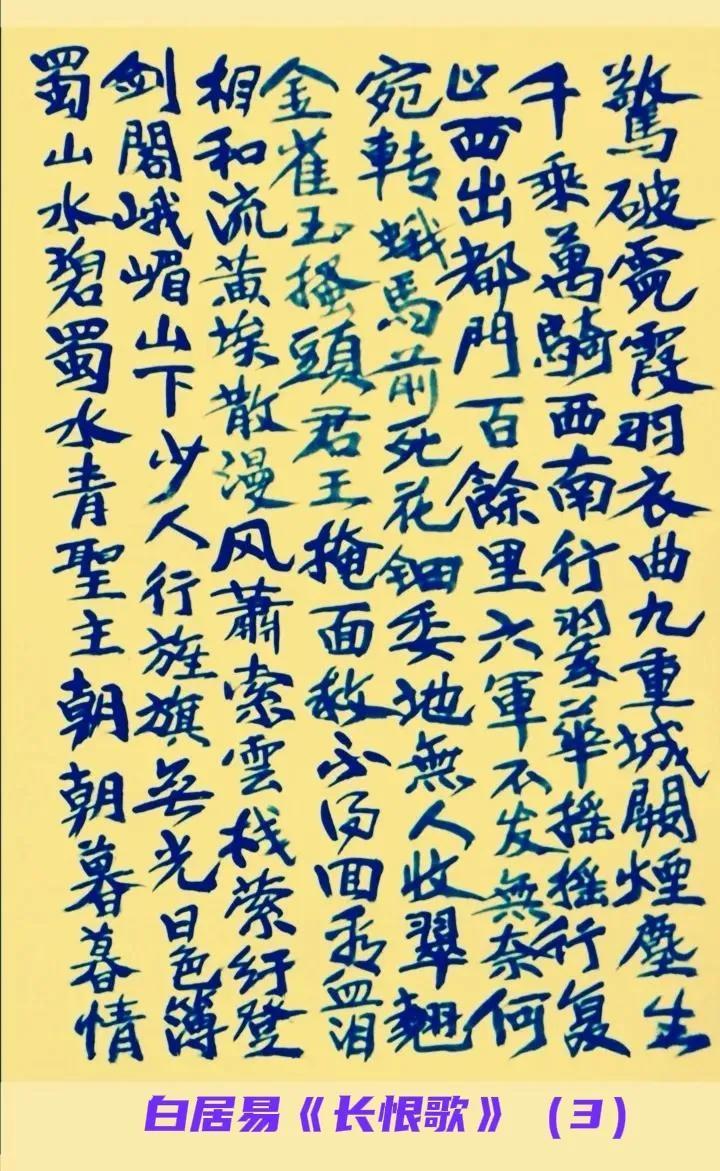 驚破霓霞羽衣曲九重城闕煙塵生
千乘萬騎西南行翠華摇摇行复
止西出都門百餘里六軍不发無奈何
宛轉蛾馬前死花鈿委地無人收翠翹
金雀玉搔頭君王掩面救不得回看血泪
相和流黄埃散漫风蕭索雲栈萦纡登
剑閣峨嵋山下少人行旌旗無光日色簿
蜀山水碧蜀水青聖主朝朝暮暮情
白居易《长恨歌》（3）